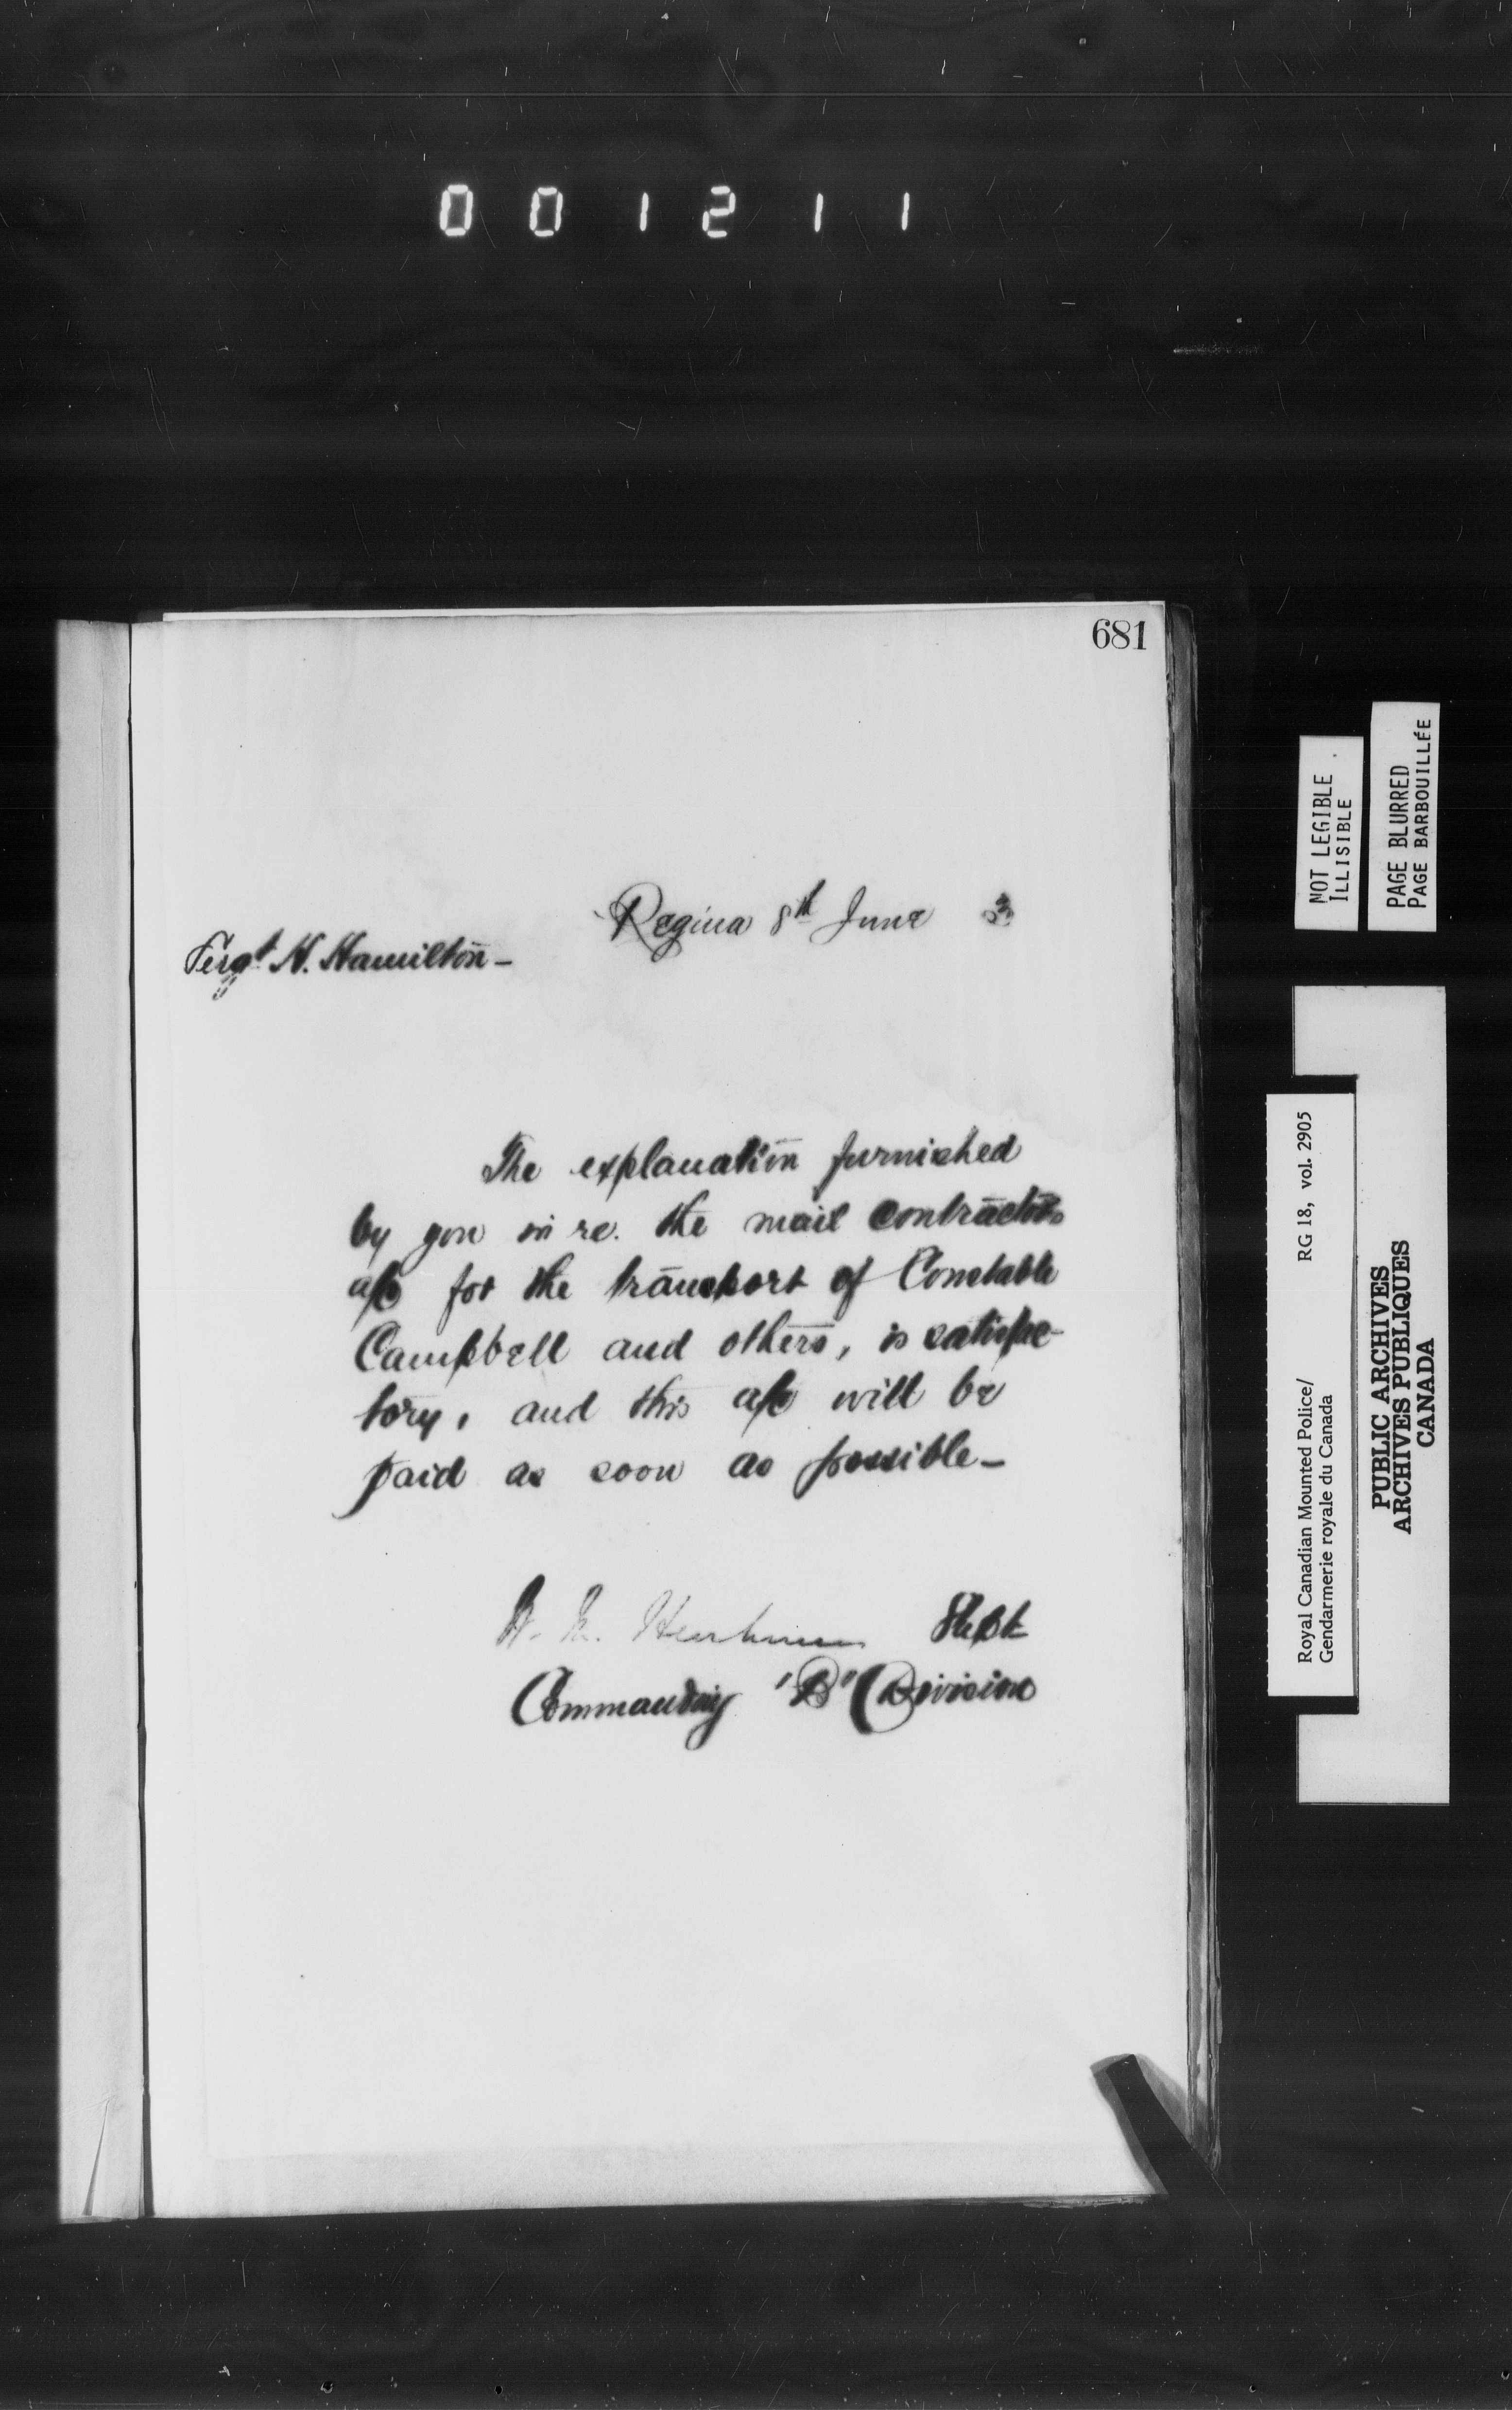 001211
681
Regina 8th June
Sergt H. Hamilton –
The explanation furnished
by you in re. the mail contractors
a/c for the transport of Constable
Campbell and others, is satisfac-
tory, and this a/c will be
paid as soon as possible –
Supt
Commanding "B" Division
NOT LEGIBLE
ILLISIBLE
PAGE BLURRED
PAGE BARBOUILLÉE
Royal Canadian Mounted Police/ RG 18, vol. 2905
Gendarmerie royale du Canada
PUBLIC ARCHIVES
ARCHIVES PUBLIQUES
CANADA